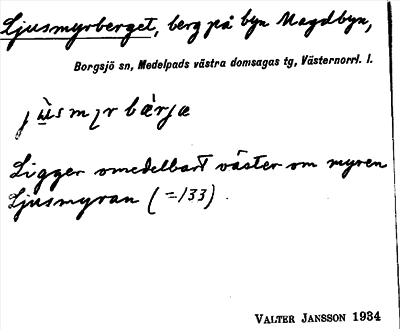 Ljusmyrberget, berg på byn Magdbyn,
Borgsjö sn, Medelpads västra domsagas tg, Västernorrl. l.
Ligger omedelbart väster om myren
Ljusmyran (=133).
VALTER JANSSON 1934